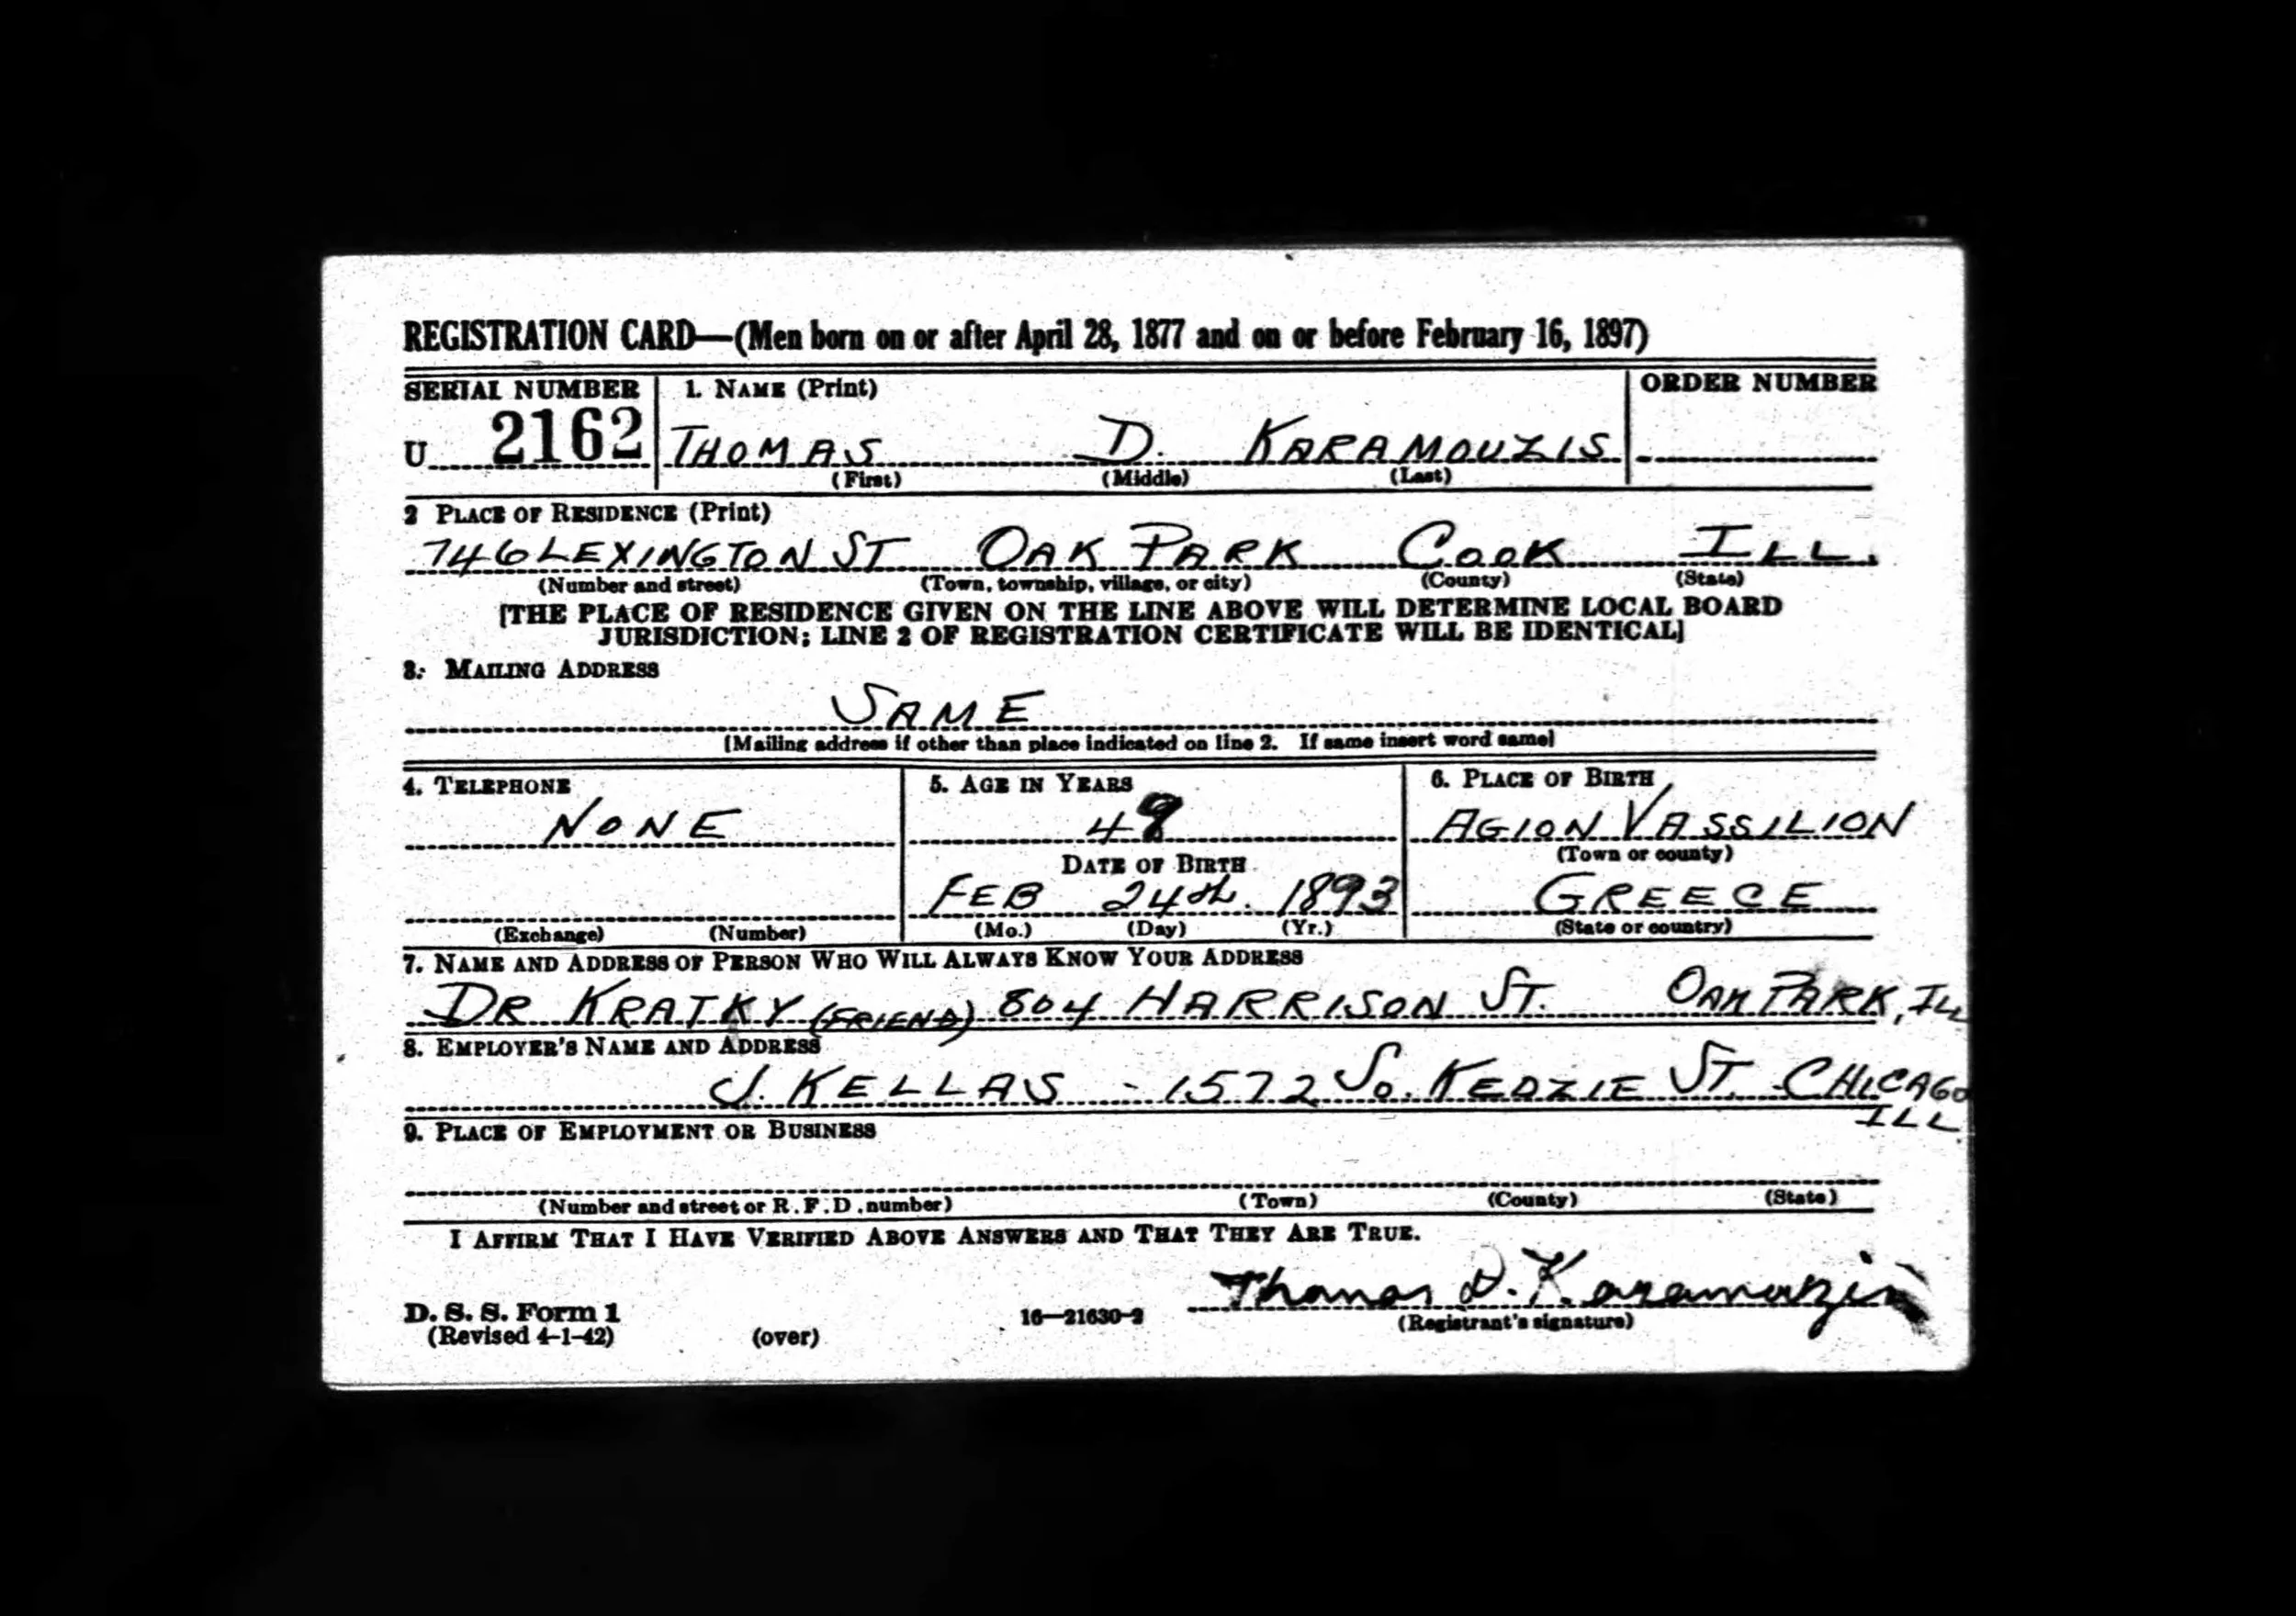 REGISTRATION CARD—(Men born on or after April 28, 1877 and on or before February 16, 1897)
SERIAL NUMBER 1. NAME (Print) ORDER NUMBER
U 2162 THOMAS D. KARAMOUZIS
(First) (Middle) (Last)
2 PLACE OF RESIDENCE (Print)
746 LEXINGTON ST OAK PARK COOK ILL.
(Number and street) (Town, township, village, or city) (County) (State)
[THE PLACE OF RESIDENCE GIVEN ON THE LINE ABOVE WILL DETERMINE LOCAL BOARD
JURISDICTION; LINE 2 OF REGISTRATION CERTIFICATE WILL BE IDENTICAL]
3. MAILING ADDRESS
SAME
[Mailing address if other than place indicated on line 2. If same insert word same]
4. TELEPHONE 5. AGE IN YEARS 6. PLACE OF BIRTH
NONE 49 AGION VASSILION
DATE OF BIRTH (Town or county)
FEB 24th. 1893 GREECE
(Exchange) (Number) (Mo.) (Day) (Yr.) (State or country)
7. NAME AND ADDRESS OF PERSON WHO WILL ALWAYS KNOW YOUR ADDRESS
DR KRATKY (FRIEND) 804 HARRISON ST. OAK PARK, ILL
8. EMPLOYER'S NAME AND ADDRESS
J. KELLAS - 1572 SO. KEDZIE ST. CHICAGO
ILL.
9. PLACE OF EMPLOYMENT OR BUSINESS
(Number and street or R.F.D. number) (Town) (County) (State)
I AFFIRM THAT I HAVE VERIFIED ABOVE ANSWERS AND THAT THEY ARE TRUE.
Thomas D. Karamouzis
D. S. S. Form 1 16—21630-2 (Registrant's signature)
(Revised 4-1-42) (over)